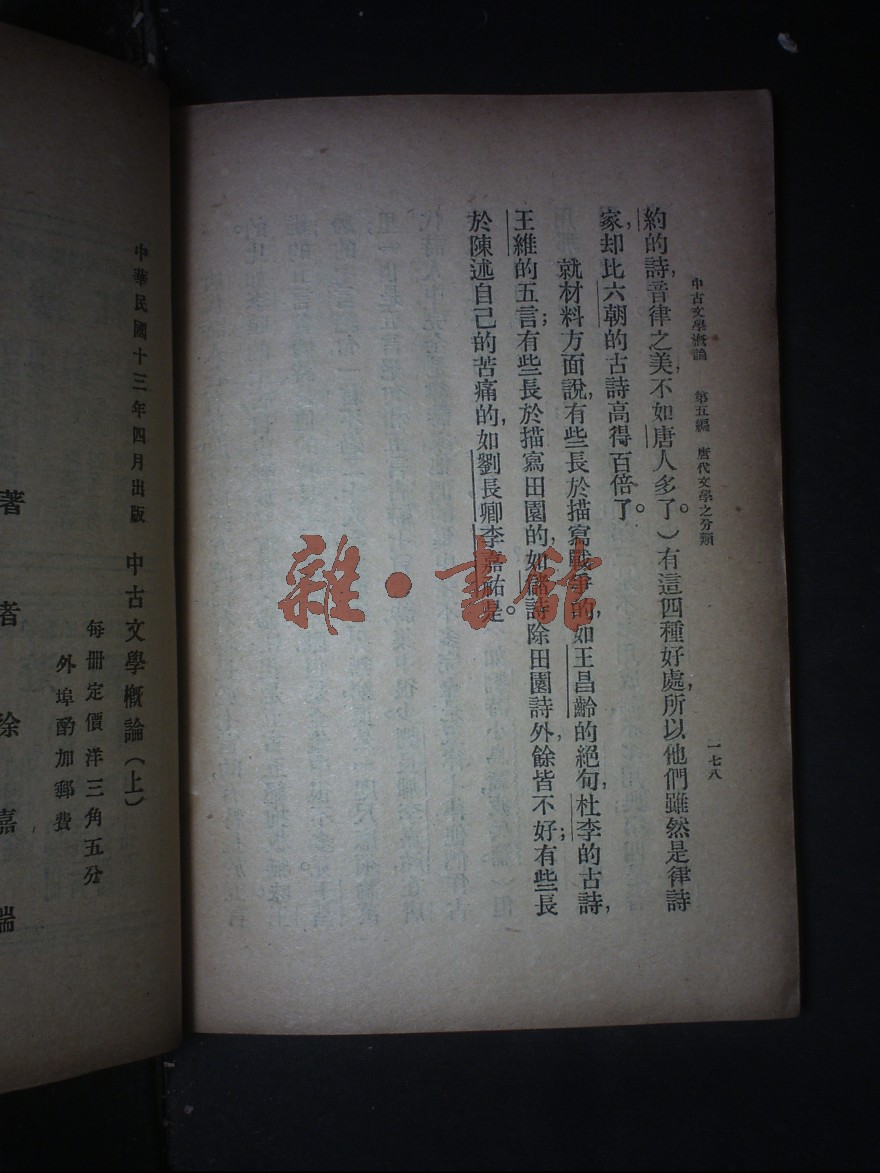 中古文學概論　第五編　唐代文學之分類
一七八
約的詩，音律之美，不如唐人多了。）有這四種好處，所以他們雖然是律詩
家，却比六朝的古詩高得百倍了。
就材料方面說，有些長於描寫戰爭的，如王昌齡的絕句，杜李的古詩，
王維的五言；有些長於描寫田園的，如儲詩除田園詩外，餘皆不好；有些長
於陳述自己的苦痛的，如劉長卿李嘉祐是。
雜·書館
中華民國十三年四月出版
中古文學概論（上）
每冊定價洋三角五分
外埠酌加郵費
著者 徐嘉瑞